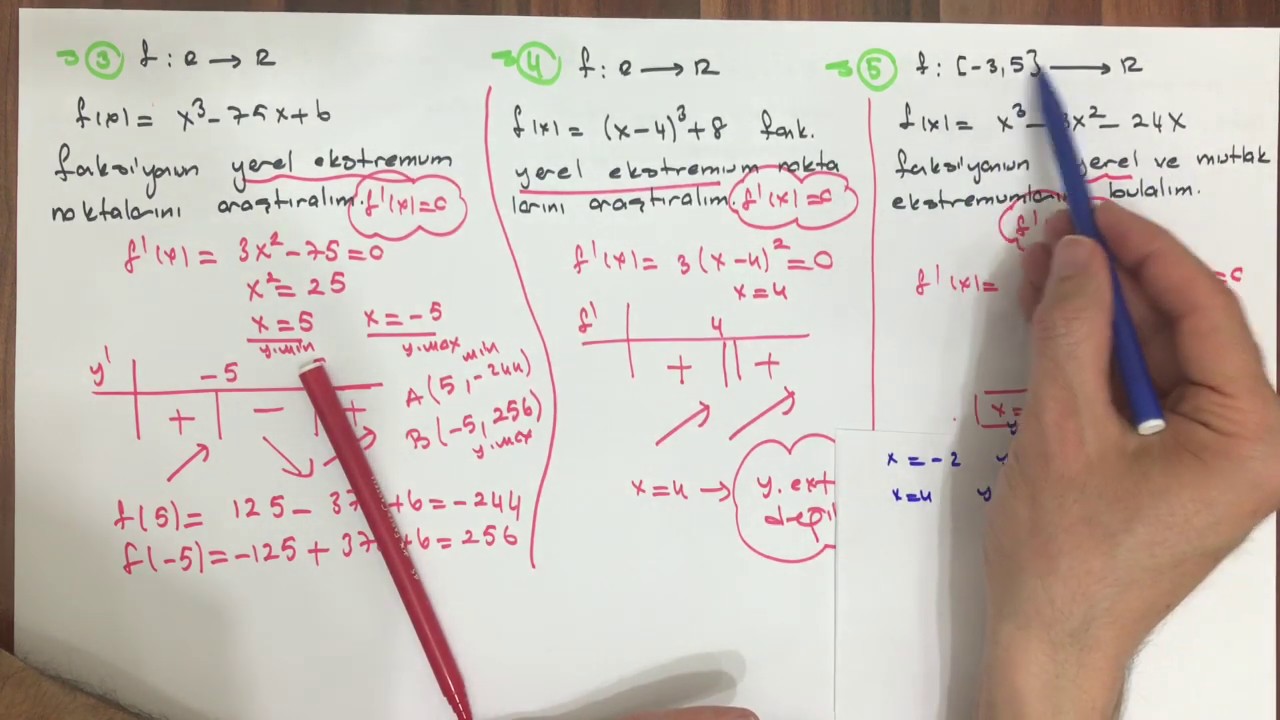 ③ f : R → R
f(x) = x³ - 75x + 6
fonksiyonun yerel ekstremum
noktalarını araştıralım. f'(x) = 0
f'(x) = 3x² - 75 = 0
x² = 25
x = 5 x = -5
y.min y.max
y' -5
+ - +
min
A(5, -244)
B(-5, 256)
y.max
f(5) = 125 - 37 + 6 = -244
f(-5) = -125 + 37 + 6 = 256
④ f : R → R
f(x) = (x-4)³ + 8 fonk.
yerel ekstremum nokta
larını araştıralım. f'(x) = 0
f'(x) = 3(x-4)² = 0
x = 4
f' 4
+ +
x = 4 → y. ext
değil
⑤ f : [-3, 5] → R
f(x) = x³ - 3x² - 24x
fonksiyonun yerel ve mutlak
ekstremumlarını bulalım.
f'
f'(x) = = 0
x =
x = -2 y
x = 4 y